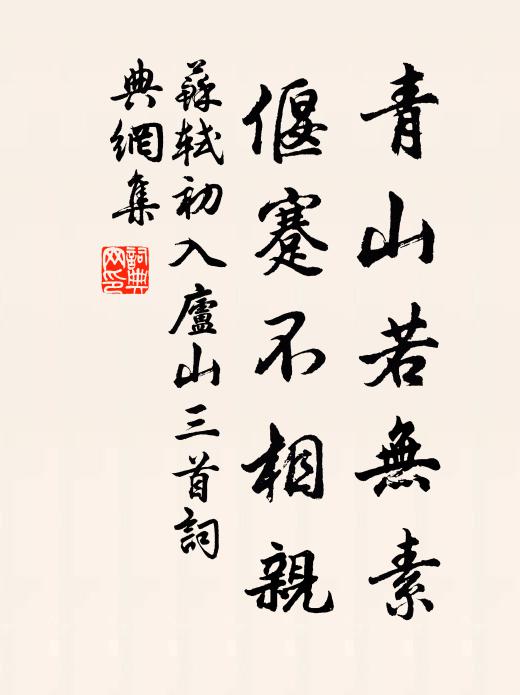 青山若無素
偃蹇不相親
蘇軾初入廬山三首詞
典網集
詞典網印